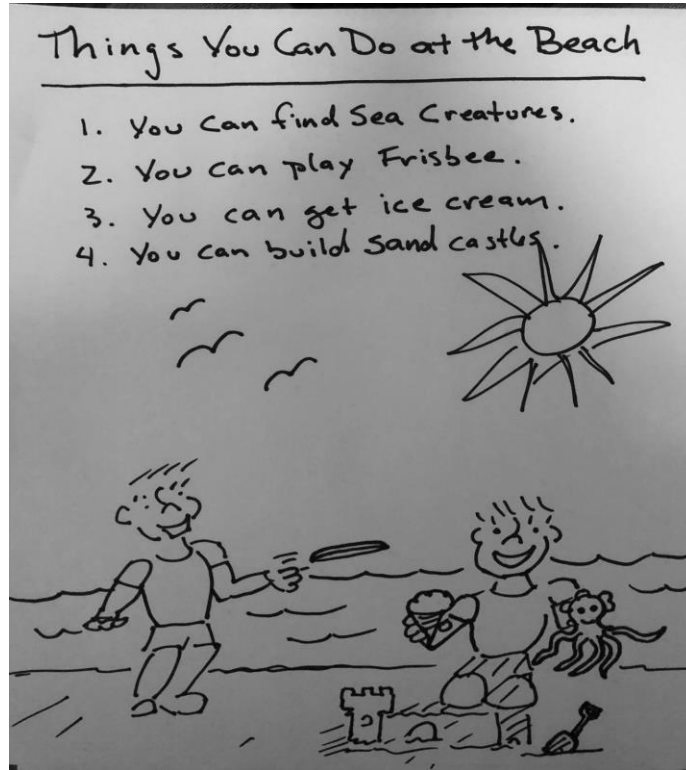 Things You Can Do at the Beach
1. You Can find Sea Creatures.
2. You can play Frisbee.
3. You can get ice cream.
4. You can build sand castles.